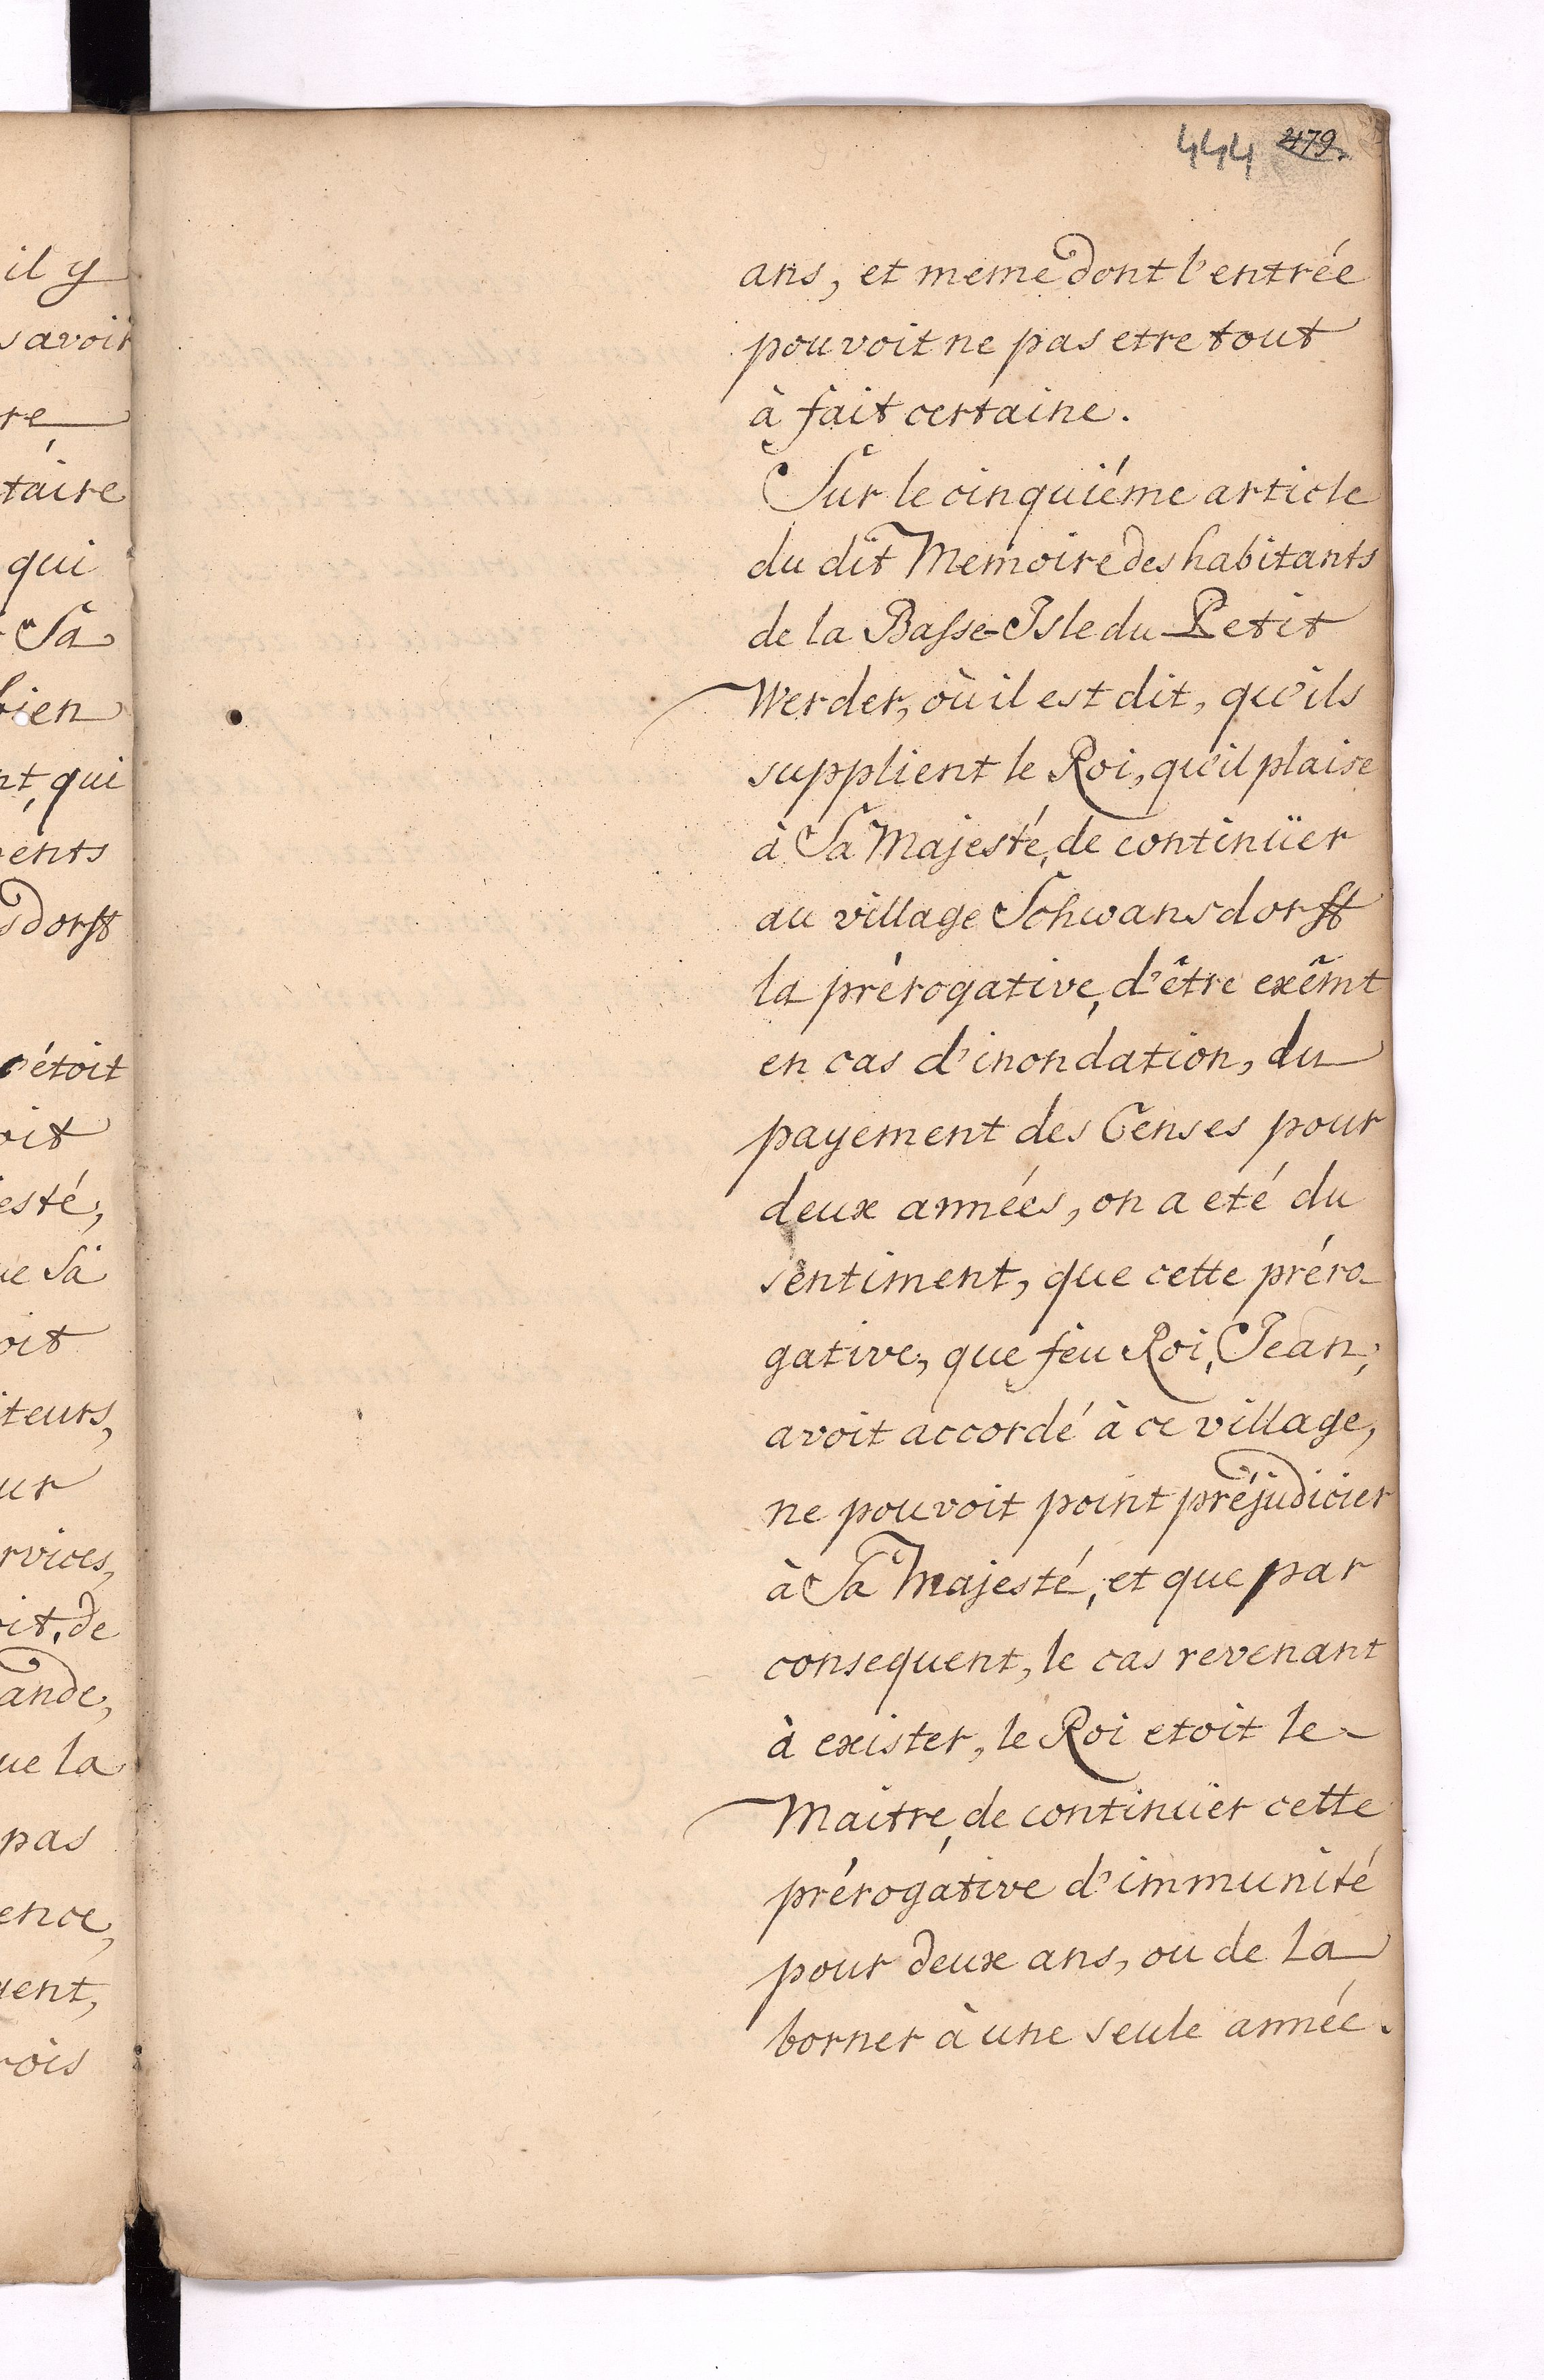 il y
savoir
re
taire
qui
Sa
bien
nt, qui
ents
sdorff
c'étoit
oit
esté,
ue Sa
oit
iteurs,
ur
rvices,
oit, de
ande,
ue la
pas
ence,
uent,
rois
444 479.
ans, et meme dont l'entrée
pouvoit ne pas etre tout
à fait certaine.
Sur le cinquiéme article
du dit Memoire des habitants
de la Basse-Isle du Petit
Werder, où il est dit, qu'ils
supplient le Roi, qu'il plaise
à Sa Majesté, de continüer
au village Schwansdorff
la prérogative, d'être exêmt
en cas d'inondation, du
payement des Censes pour
deux années, on a eté du
sentiment, que cette préro-
gative, que feu Roi, Jean,
avoit accordé à ce village,
ne pouvoit point préjudicier
à Sa Majesté, et que par
consequent, le cas revenant
à exister, le Roi etoit le
Maitre, de continüer cette
prérogative d'immunité
pour deux ans, ou de la
borner à une seule année.